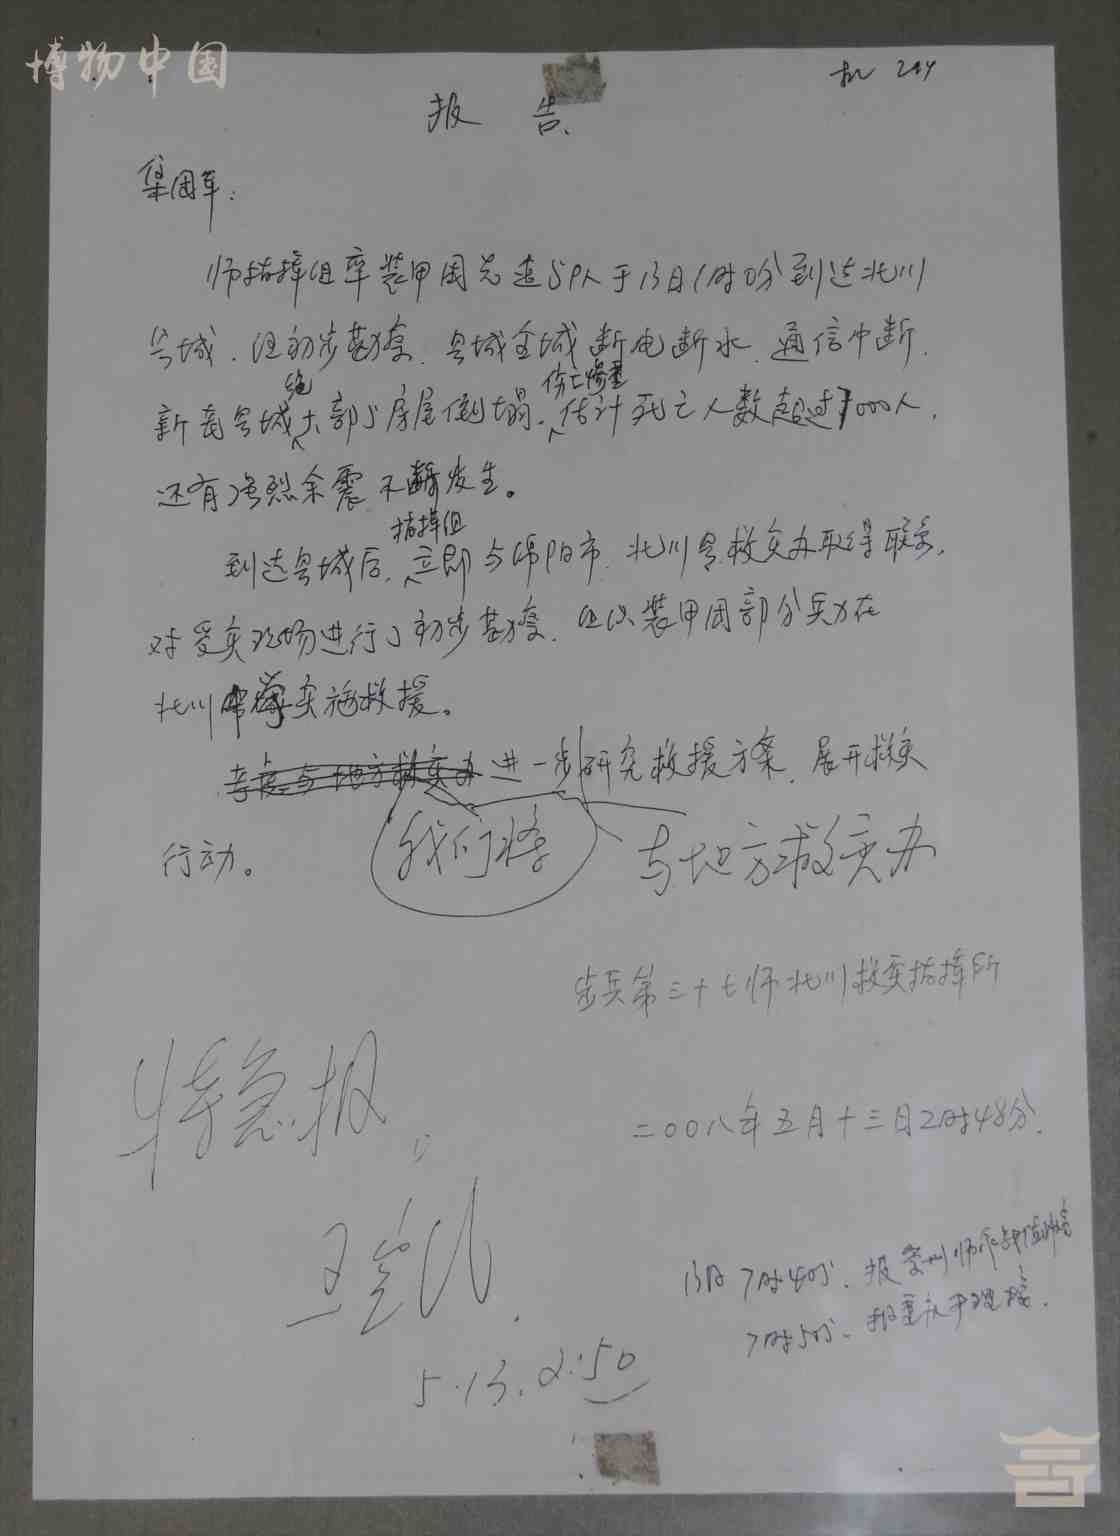 博物中国
报告
集团军：
师指挥组率装甲团先遣59人于13日1时0分到达北川
县城，经初步勘察，县城全城断电断水，通信中断，
新老县城绝大部分房屋倒塌，伤亡惨重，估计死亡人数超过7000人，
还有强烈余震不断发生。
到达县城后，指挥组立即与绵阳市、北川县救灾办取得联系，
对受灾现场进行了初步勘察，组织装甲团部分兵力在
北川中学实施救援。
考虑与地方救灾办进一步研究救援方案，展开救灾
行动。
我们将
与地方救灾办
步兵第三十七师北川救灾指挥所
特急报。
二〇〇八年五月十三日2时48分.
13日7时40分、报
7时50分、报重庆
5.13.2:50